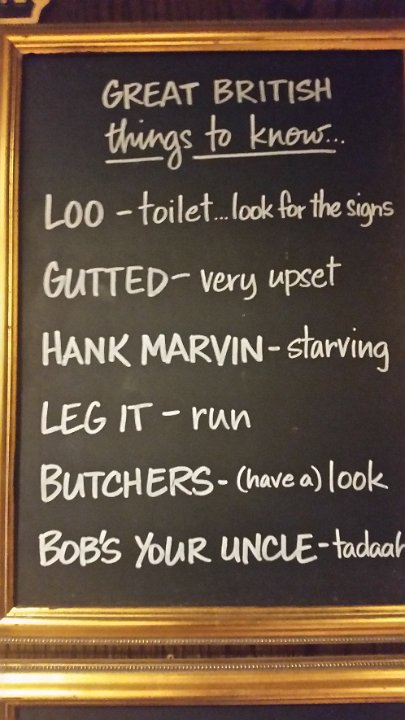 GREAT BRITISH
things to know...
LOO - toilet... look for the signs
GUTTED - very upset
HANK MARVIN - starving
LEG IT - run
BUTCHERS - (have a) look
BOB'S YOUR UNCLE - tadaah